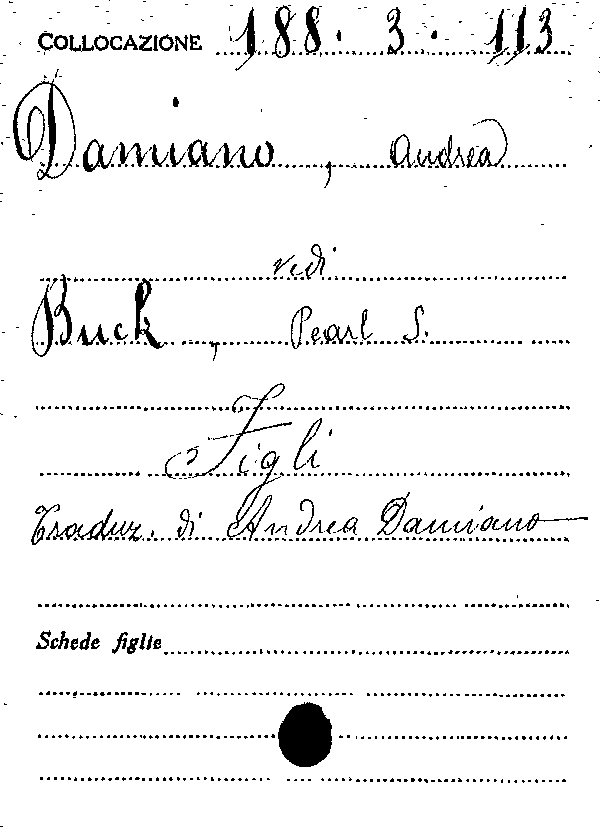 COLLOCAZIONE 188. 3. 113
Damiano, Andrea
vedi
Buck, Pearl S.
Figli
Traduz. di Andrea Damiano
Schede figlie